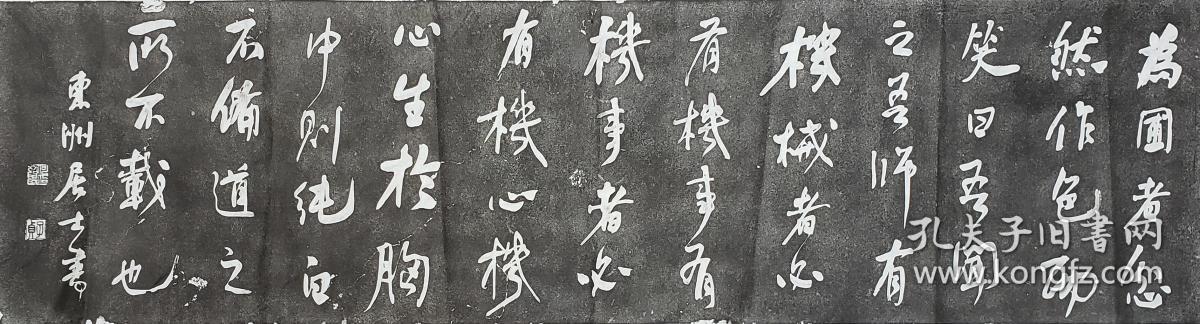 為圃者忿
然作色而
笑曰吾聞
之吾師有
機械者必
有機事有
機事者必
有機心機
心生於胸
中則純白
不備道之
所不載也
東洲居士書
孔夫子旧書网
www.kongfz.com